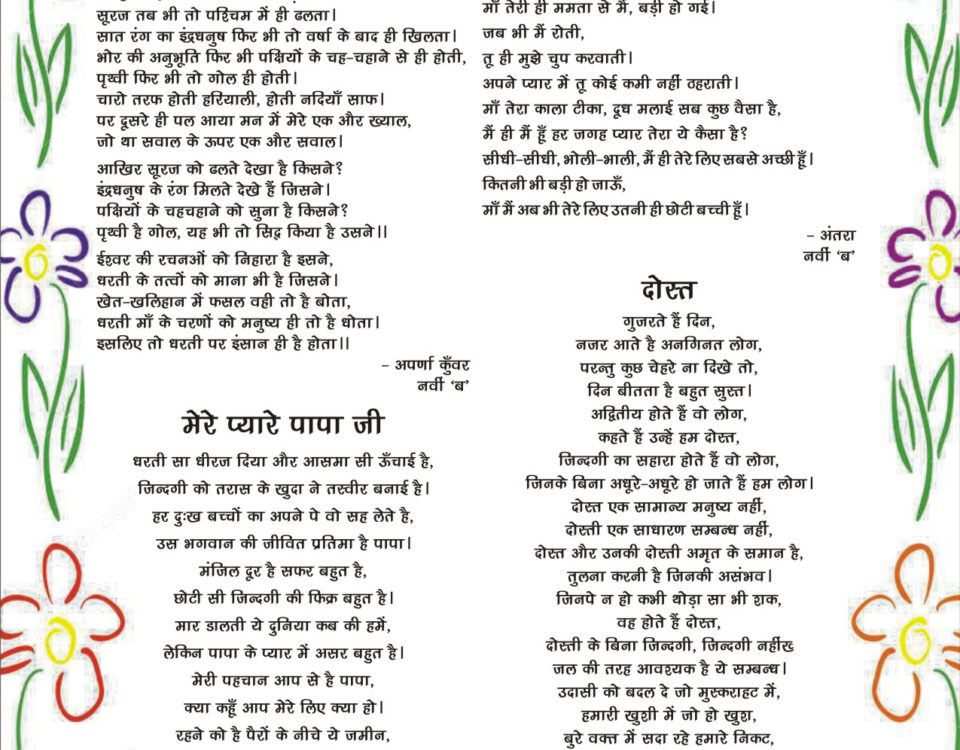 सूरज तब भी तो पश्चिम में ही ढलता।
सात रंग का इंद्रधनुष फिर भी तो वर्षा के बाद ही खिलता।
भोर की अनुभूति फिर भी पक्षियों के चह-चहाने से ही होती,
पृथ्वी फिर भी तो गोल ही होती।
चारो तरफ होती हरियाली, होती नदियाँ साफ।
पर दूसरे ही पल आया मन में मेरे एक और ख्याल,
जो था सवाल के ऊपर एक और सवाल।
आखिर सूरज को ढलते देखा है किसने?
इंद्रधनुष के रंग मिलते देखे हैं जिसने।
पक्षियों के चहचहाने को सुना है किसने?
पृथ्वी है गोल, यह भी तो सिद्व किया है उसने।।
ईश्वर की रचनओं को निहारा है इसने,
धरती के तत्वों को माना भी है जिसने।
खेत-खलिहान में फसल वही तो है बोता,
धरती माँ के चरणों को मनुष्य ही तो है धोता।
इसलिए तो धरती पर इंसान ही है होता।।
- अपर्णा कुँवर
नवीं ‘ब’
मेरे प्यारे पापा जी
धरती सा धीरज दिया और आसमा सी ऊँचाई है,
जिन्दगी को तरास के खुदा ने तस्वीर बनाई है।
हर दुःख बच्चों का अपने पे वो सह लेते है,
उस भगवान की जीवित प्रतिमा है पापा।
मंजिल दूर है सफर बहुत है,
छोटी सी जिन्दगी की फिक्र बहुत है।
मार डालती ये दुनिया कब की हमें,
लेकिन पापा के प्यार में असर बहुत है।
मेरी पहचान आप से है पापा,
क्या कहूँ आप मेरे लिए क्या हो।
रहने को है पैरों के नीचे ये जमीन,
माँ तेरी ही ममता से मैं, बड़ी हो गई।
जब भी मैं रोती,
तू ही मुझे चुप करवाती।
अपने प्यार में तू कोई कमी नहीं ठहराती।
माँ तेरा काला टीका, दूध मलाई सब कुछ वैसा है,
मैं ही मैं हूँ हर जगह प्यार तेरा ये कैसा है?
सीधी-सीधी, भोली-भाली, मैं ही तेरे लिए सबसे अच्छी हूँ।
कितनी भी बड़ी हो जाऊँ,
माँ मैं अब भी तेरे लिए उतनी ही छोटी बच्ची हूँ।
- अंतरा
नवीं ‘ब’
दोस्त
गुजरते हैं दिन,
नजर आते है अनगिनत लोग,
परन्तु कुछ चेहरे ना दिखे तो,
दिन बीतता है बहुत सुस्त।
अद्वितीय होते हैं वो लोग,
कहते हैं उन्हें हम दोस्त,
जिन्दगी का सहारा होते हैं वो लोग,
जिनके बिना अधूरे-अधूरे हो जाते हैं हम लोग।
दोस्त एक सामान्य मनुष्य नहीं,
दोस्ती एक साधारण सम्बन्ध नहीं,
दोस्त और उनकी दोस्ती अमृत के समान है,
तुलना करनी है जिनकी असंभव।
जिनपे न हो कभी थोड़ा सा भी शक,
वह होते हैं दोस्त,
दोस्ती के बिना जिन्दगी, जिन्दगी नहींख्
जल की तरह आवश्यक है ये सम्बन्ध।
उदासी को बदल दे जो मुस्कराहट में,
हमारी खुशी में जो हो खुश,
बुरे वक्त में सदा रहे हमारे निकट,